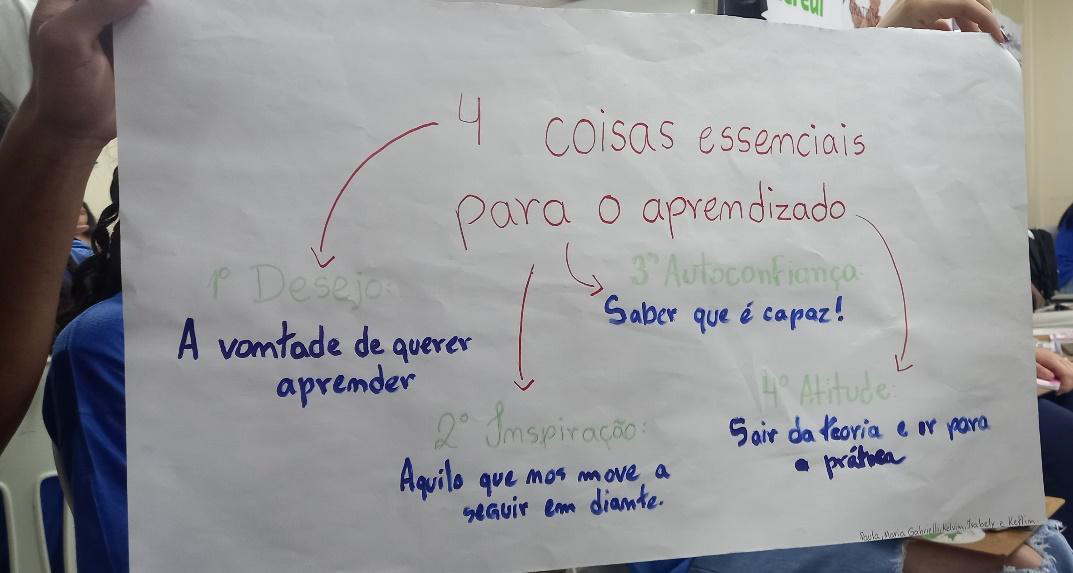 4 coisas essenciais
para o aprendizado
1º Desejo:
A vontade de querer
aprender
2º Inspiração:
Aquilo que nos move a
seguir em diante.
3º Autoconfiança
Saber que é capaz!
4º Atitude:
Sair da teoria e ir para
a prática
Paula, Maria Gabrielli, Kelvin, Isabely e